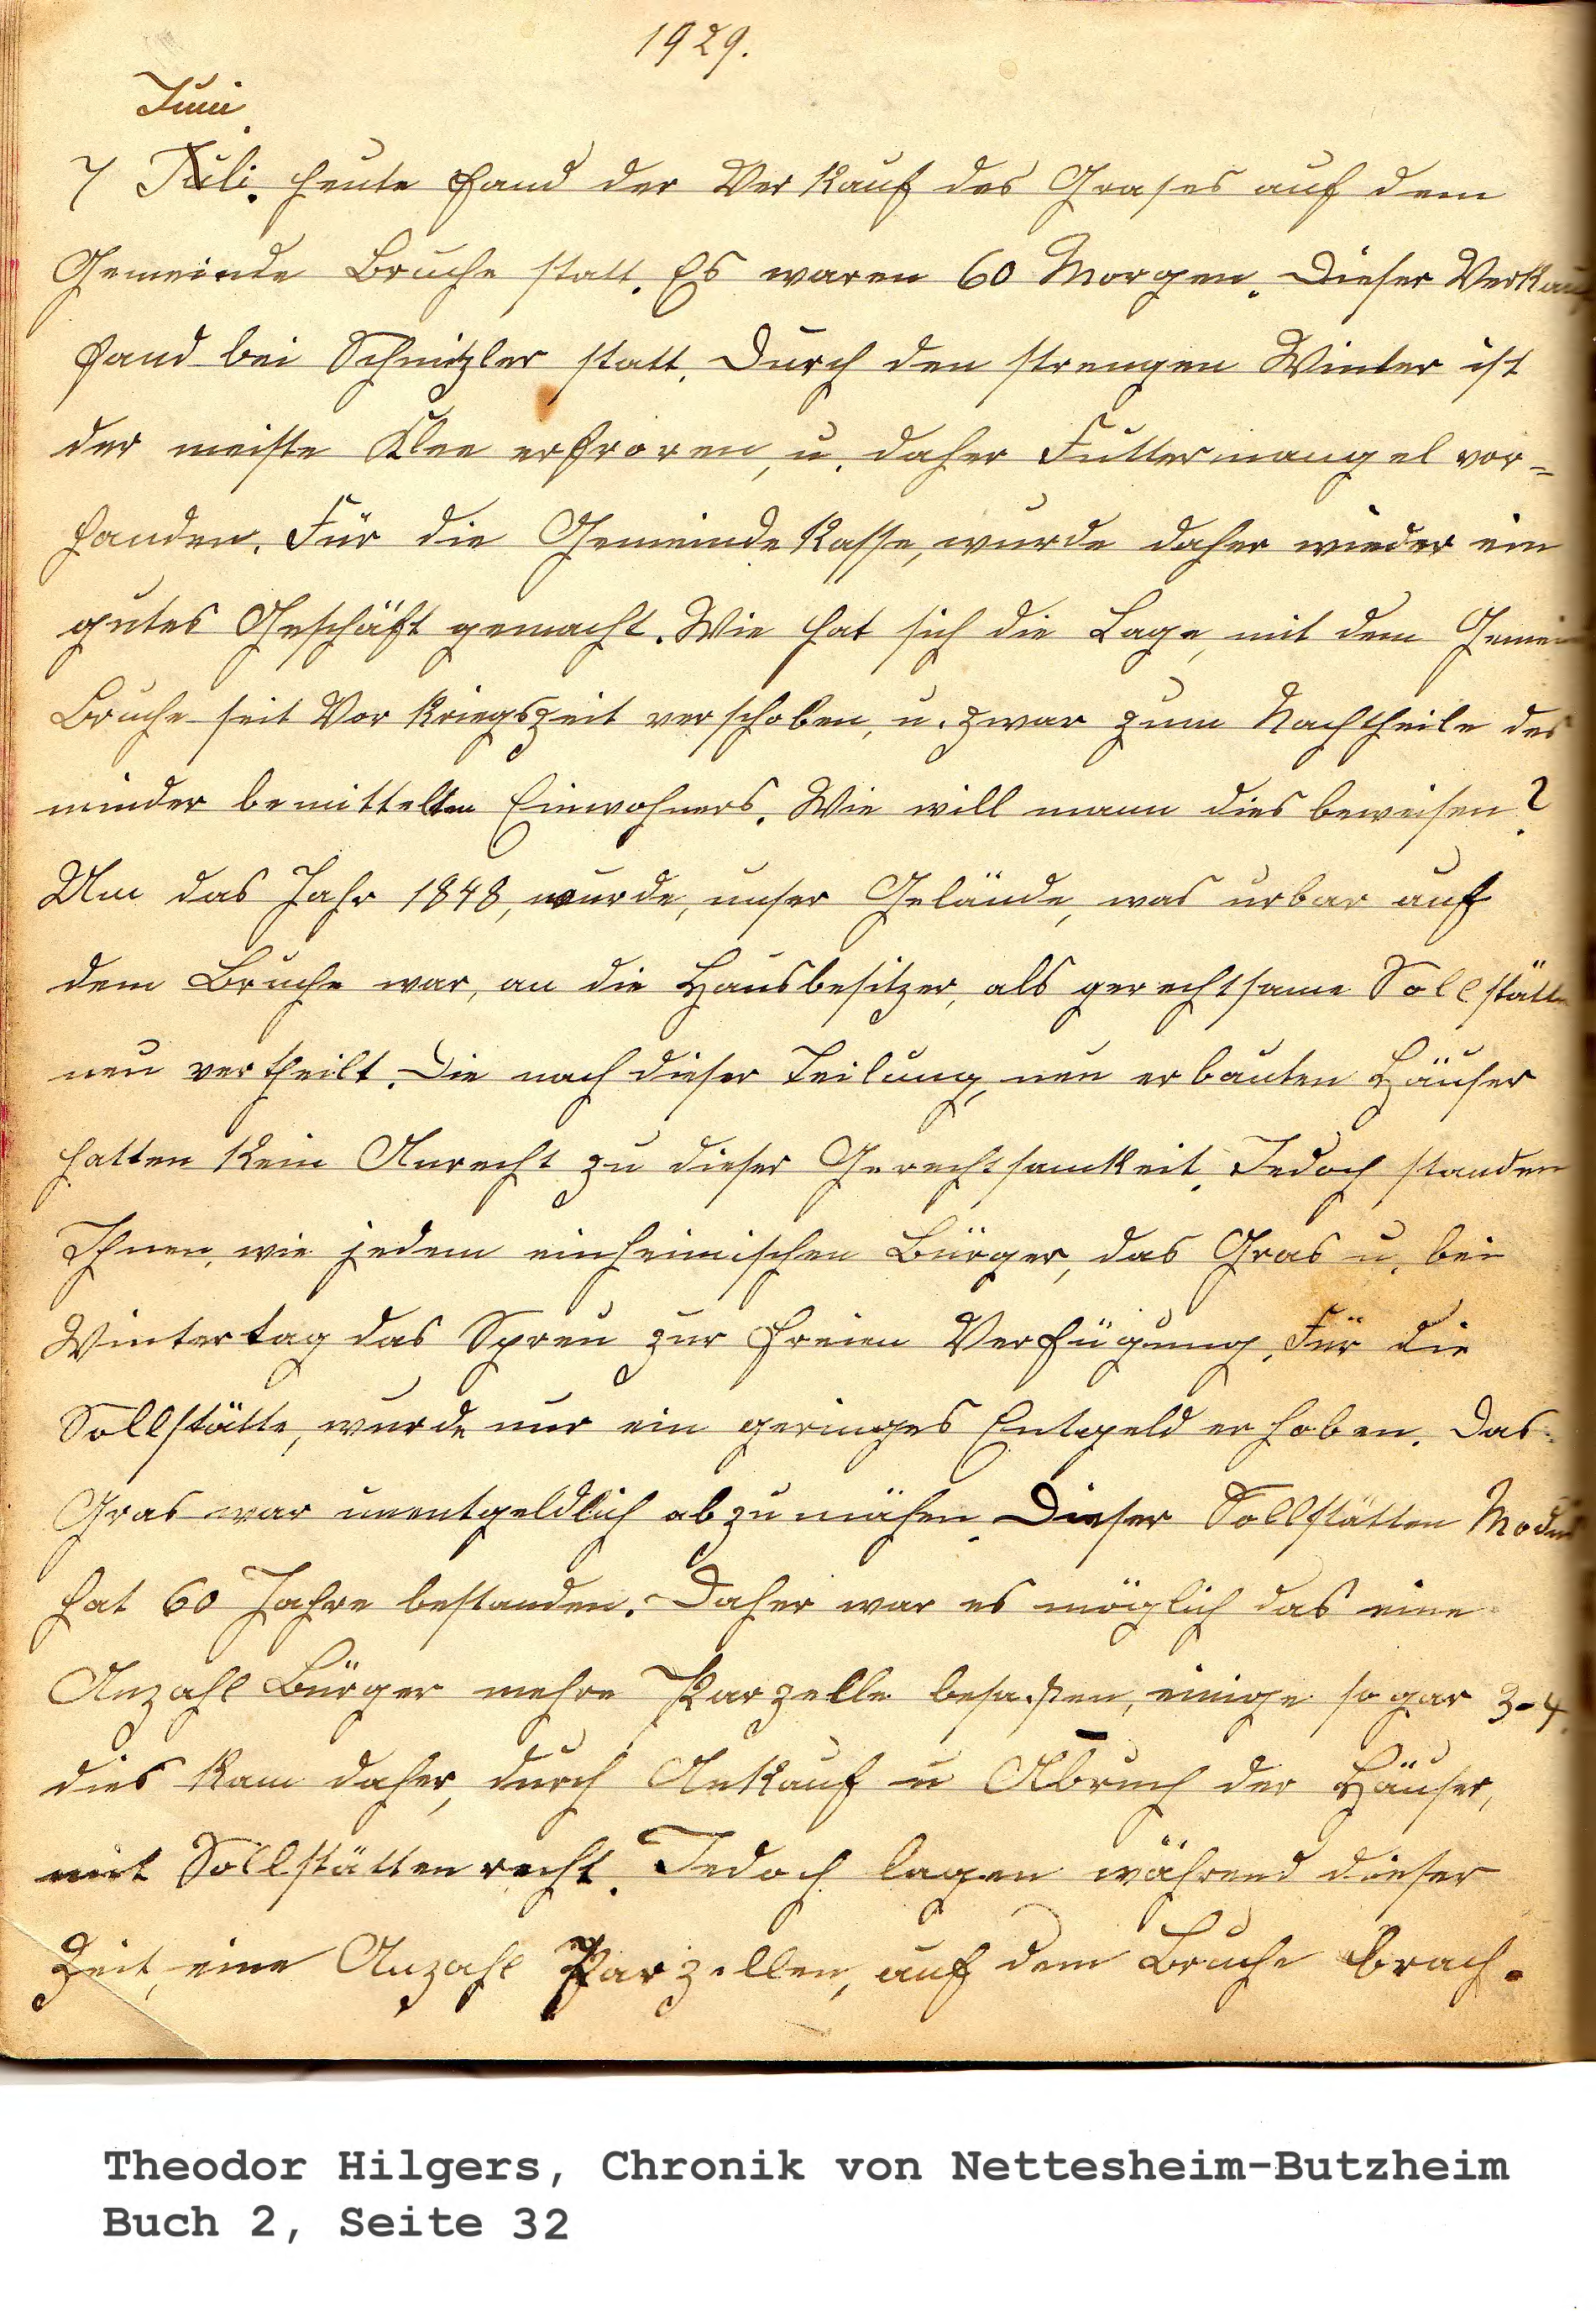 1929.
Juni
7 Juli. heute fand der Verkauf des Grases auf dem
Gemeinde Bruche statt. Es waren 60 Morgen. Dieser Verkau
fand bei Schnitzler statt. Durch den strengen Winter ist
der meiste Klee erfroren, u. daher Futtermangel vor=
handen. Für die Gemeindekasse, wurde daher wieder ein
gutes Geschäft gemacht. Wie hat sich die Lage, mit dem Gemein
Bruche seit Vorkriegszeit verschoben, u. zwar zum Nachtheile des
minder bemittelten Einwohners. Wie will mann dies beweisen?
Um das Jahr 1848, wurde, unser Gelände, was urbar auf
dem Bruche war, an die Hausbesitzer, als gerechtsame Sollstätte
neu vertheilt. Die nach dieser Teilung, neu erbauten Häuser
hatten kein Anrecht zu dieser Gerechtsamkeit. Jedoch standen
Ihnen, wie jedem einheimischen Bürger, das Gras u. bei
Wintertag das Spreu zur freien Verfügung. Für die
Sollstätte, wurde nur ein geringes Entgeld erhoben. Das
Gras war unentgeldlich abzumähen. Dieser Sollstätten Modus
hat 60 Jahre bestanden. Daher war es möglich das eine
Anzahl Bürger mehre Parzelle besaßen, einige sogar 3-4.
dies kam daher, durch Ankauf u Abruch der Häuser,
mit Sollstättenrecht. Jedoch lagen während dieser
Zeit, eine Anzahl Parzellen, auf dem Bruche brach.
Theodor Hilgers, Chronik von Nettesheim-Butzheim
Buch 2, Seite 32